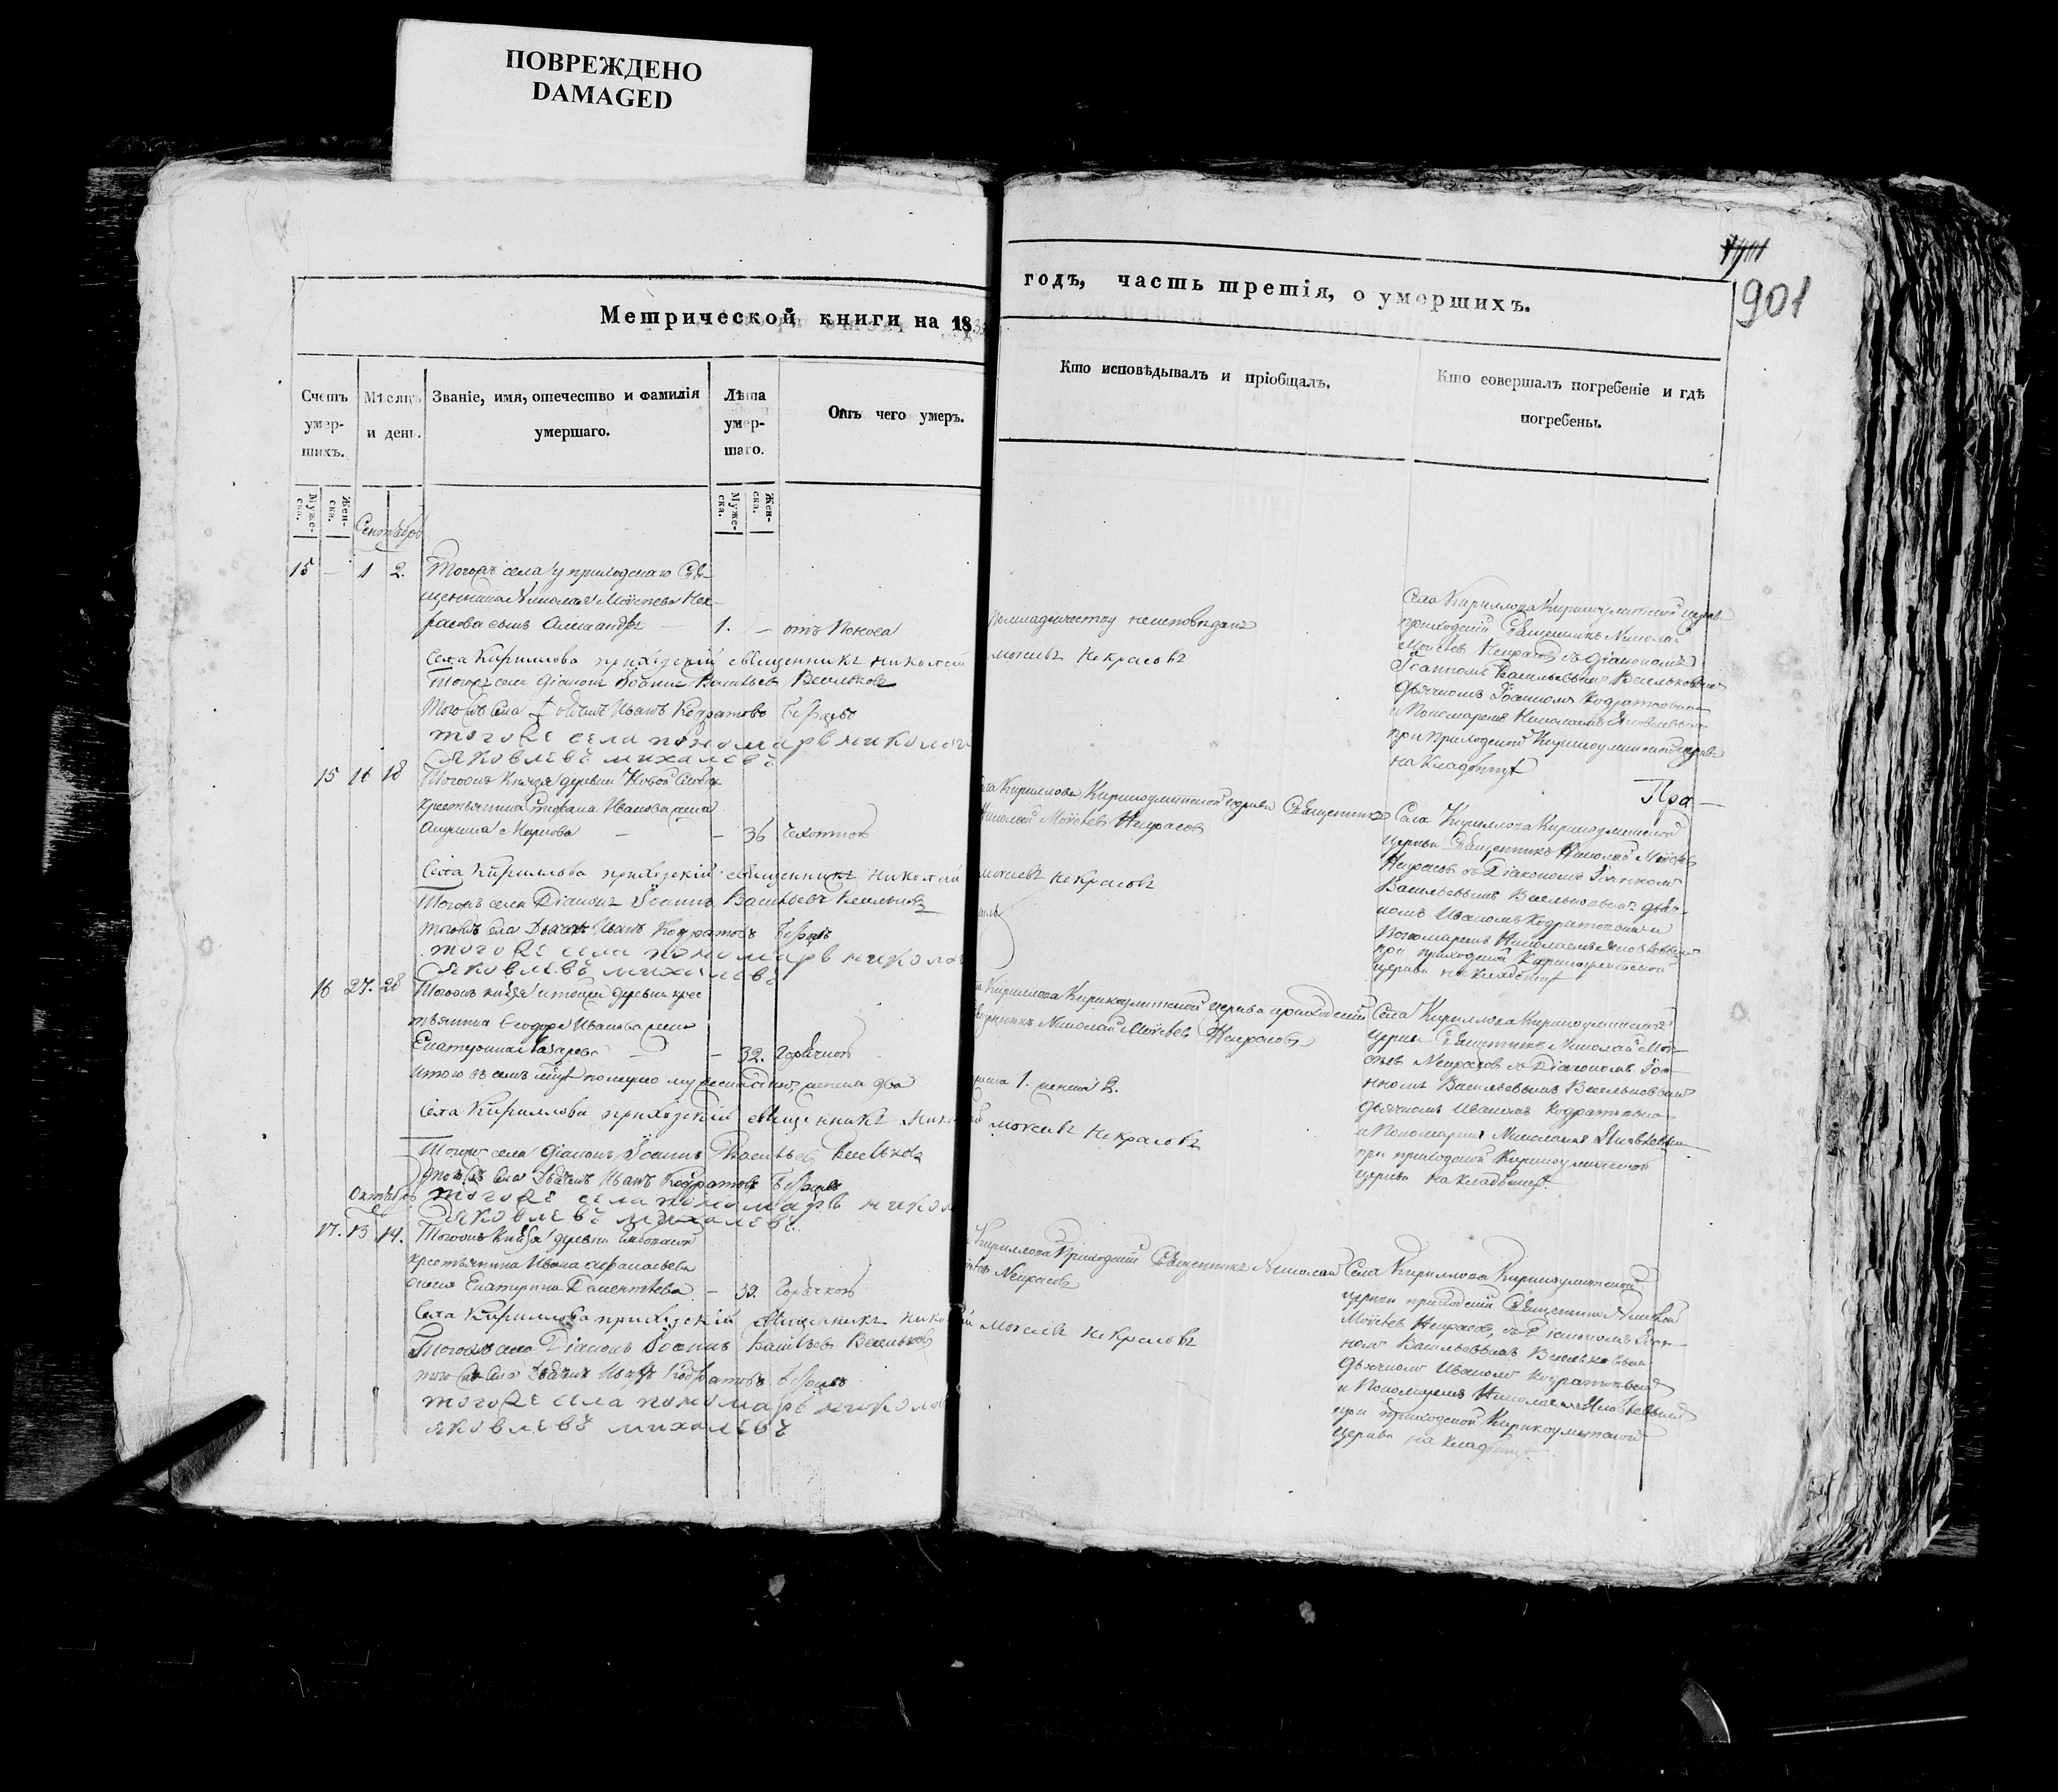 ПОВРЕЖДЕНО
DAMAGED
901
Метрической книги на 183
годъ, часть третія, о умершихъ.
Счетъ умер-шихъ.
Мѣсяцъ и день.
Званіе, имя, отечество и фамилія умершаго.
Лѣта умер-шаго.
Отъ чего умеръ.
Кто исповѣдывалъ и пріобщалъ.
Кто совершалъ погребеніе и гдѣ погребены.
Муже-ска.
Жен-ска.
Муже-ска.
Жен-ска.
Сентябрь
15 — 1 2. Тогожъ села у приходскаго Свя-
щенника Николая Моѵсеева Нек-
расова сынъ Александръ — 1. — отъ поноса
по младенчеству неисповѣданъ
Села Кириллова приходскій священникъ Николай Моисеевъ Некрасовъ
Тогожъ села Діаконъ Іоаннъ Васильевъ Весельковъ
Тогожъ села Иванъ Кодратовъ
тогоже села пономарь Николай
Яковлевъ Михалевъ
Села Кириллова Кирикоулитской церкви
приходскій Священникъ Николай
Моѵсеевъ Некрасовъ съ Діакономъ
Іоанномъ Васильевымъ Весельковымъ
Дьячкомъ Іоанномъ Кодратовымъ
и Пономаремъ Николаемъ Яковлевымъ
при приходской Кирикоулитской церкви
на кладбищѣ
15 16 18 Тогожъ Князя деревни Новой
крестьянина Стефана Иванова жена
Акулина Маркова — — 36 Чахоткою
Кириллова Кирикоулитской церкви Священникъ
Николай Моѵсеевъ Некрасовъ
Села Кириллова приходскій священникъ Николай Моисеевъ Некрасовъ
Тогожъ села Діаконъ Іоаннъ Васильевъ Весельковъ
тогожъ села Дьячекъ Иванъ Кодратовъ
тогоже села пономарь Николай
Яковлевъ Михалевъ
Села Кириллова Кирикоулитской
церкви Священникъ Николай Моѵсеевъ
Некрасовъ съ Діакономъ Іоанномъ
Васильевымъ Весельковымъ дьяч-
комъ Иваномъ Кодратовымъ и
Пономаремъ Николаемъ Яковлевымъ
при приходской Кирикоулитской
церкви на кладбищѣ
16 27. 28 Тогожъ князя и тойже деревни крес
тьянина Ѳеодора Иванова жена
Екатерина Лазарева — — 32. Горячкою
Кириллова Кирикоулитской церкви приходскій
Священникъ Николай Моѵсеевъ Некрасовъ
Итого въ семъ мѣсяцѣ померло мужеска одинъ, женска два
1. женска 2.
Села Кириллова приходскій священникъ Николай Моисеевъ Некрасовъ
Тогожъ села Діаконъ Іоаннъ Васильевъ Весельковъ
тогожъ села Дьячекъ Иванъ Кодратовъ
тогоже села пономарь Никол
Яковлевъ Михалевъ
Села Кириллова Кирикоулитской
церкви Священникъ Николай Моѵ-
сеевъ Некрасовъ съ Діакономъ Іоа-
нномъ Васильевымъ Весельковымъ
дьячкомъ Иваномъ Кодратовымъ
и Пономаремъ Николаемъ Яковлевымъ
при приходской Кирикоулитской
церкви на кладбищѣ.
Октябрь
17. 13 14. Тогожъ Князя деревни
крестьянина Ивана Афанасьева
Екатерина Дементьева — 39. Горячкою
Кириллова Приходскій Священникъ Николай
Некрасовъ
Села Кириллова приходскій священникъ Николай Моисеевъ Некрасовъ
Тогожъ села Діаконъ Іоаннъ Васильевъ Весельковъ
тогожъ села Дьячекъ Иванъ Кодратовъ
тогоже села пономарь Николай
Яковлевъ Михалевъ
Села Кириллова Кирикоулитской
церкви приходскій Священникъ Николай
Моѵсеевъ Некрасовъ, съ Діакономъ Іоан-
номъ Васильевымъ Весельковымъ
Дьячкомъ Иваномъ Кодратовымъ
и Пономаремъ Николаемъ Яковлевымъ
при приходской Кирикоулитской
церкви на кладбищѣ.